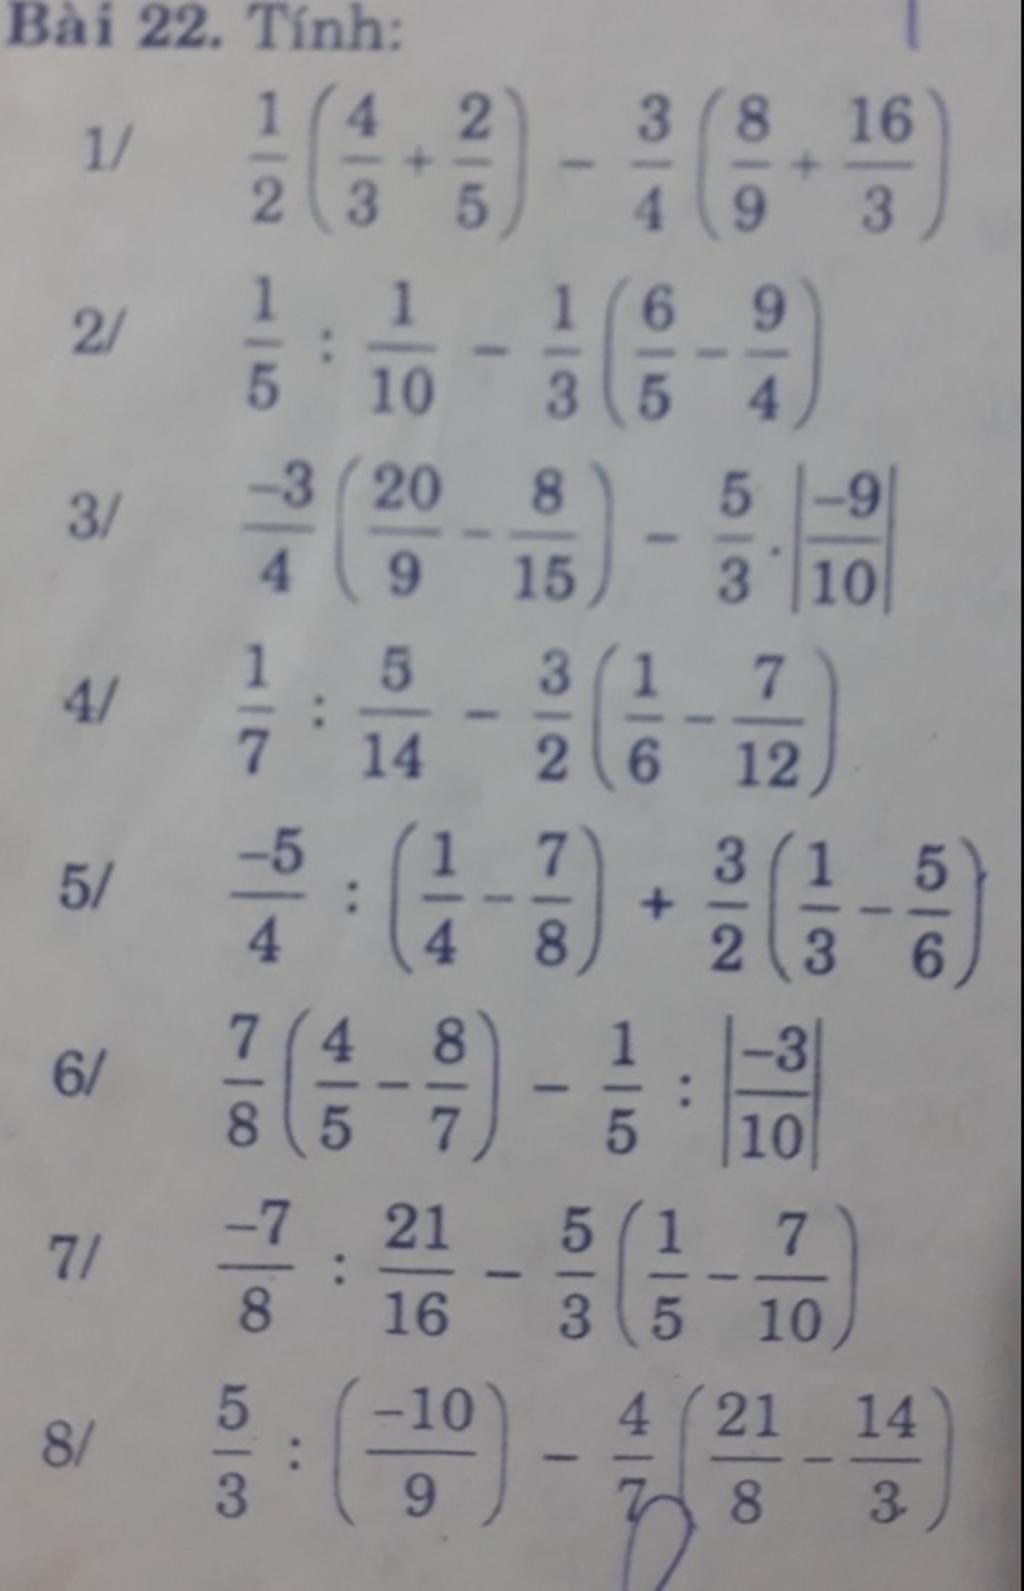 Bài 22. Tính:
1/ 1/2 (4/3 + 2/5) - 3/4 (8/9 + 16/3)
2/ 1/5 : 1/10 - 1/3 (6/5 - 9/4)
3/ -3/4 (20/9 - 8/15) - 5/3 . |-9/10|
4/ 1/7 : 5/14 - 3/2 (1/6 - 7/12)
5/ -5/4 : (1/4 - 7/8) + 3/2 (1/3 - 5/6)
6/ 7/8 (4/5 - 8/7) - 1/5 : |-3/10|
7/ -7/8 : 21/16 - 5/3 (1/5 - 7/10)
8/ 5/3 : (-10/9) - 4/7 (21/8 - 14/3)